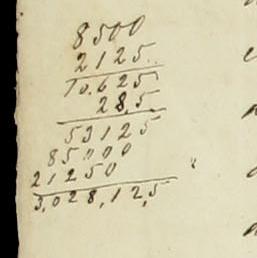 8500
2125
10.625
28,5
53125
85000
21250
3,028,12,5